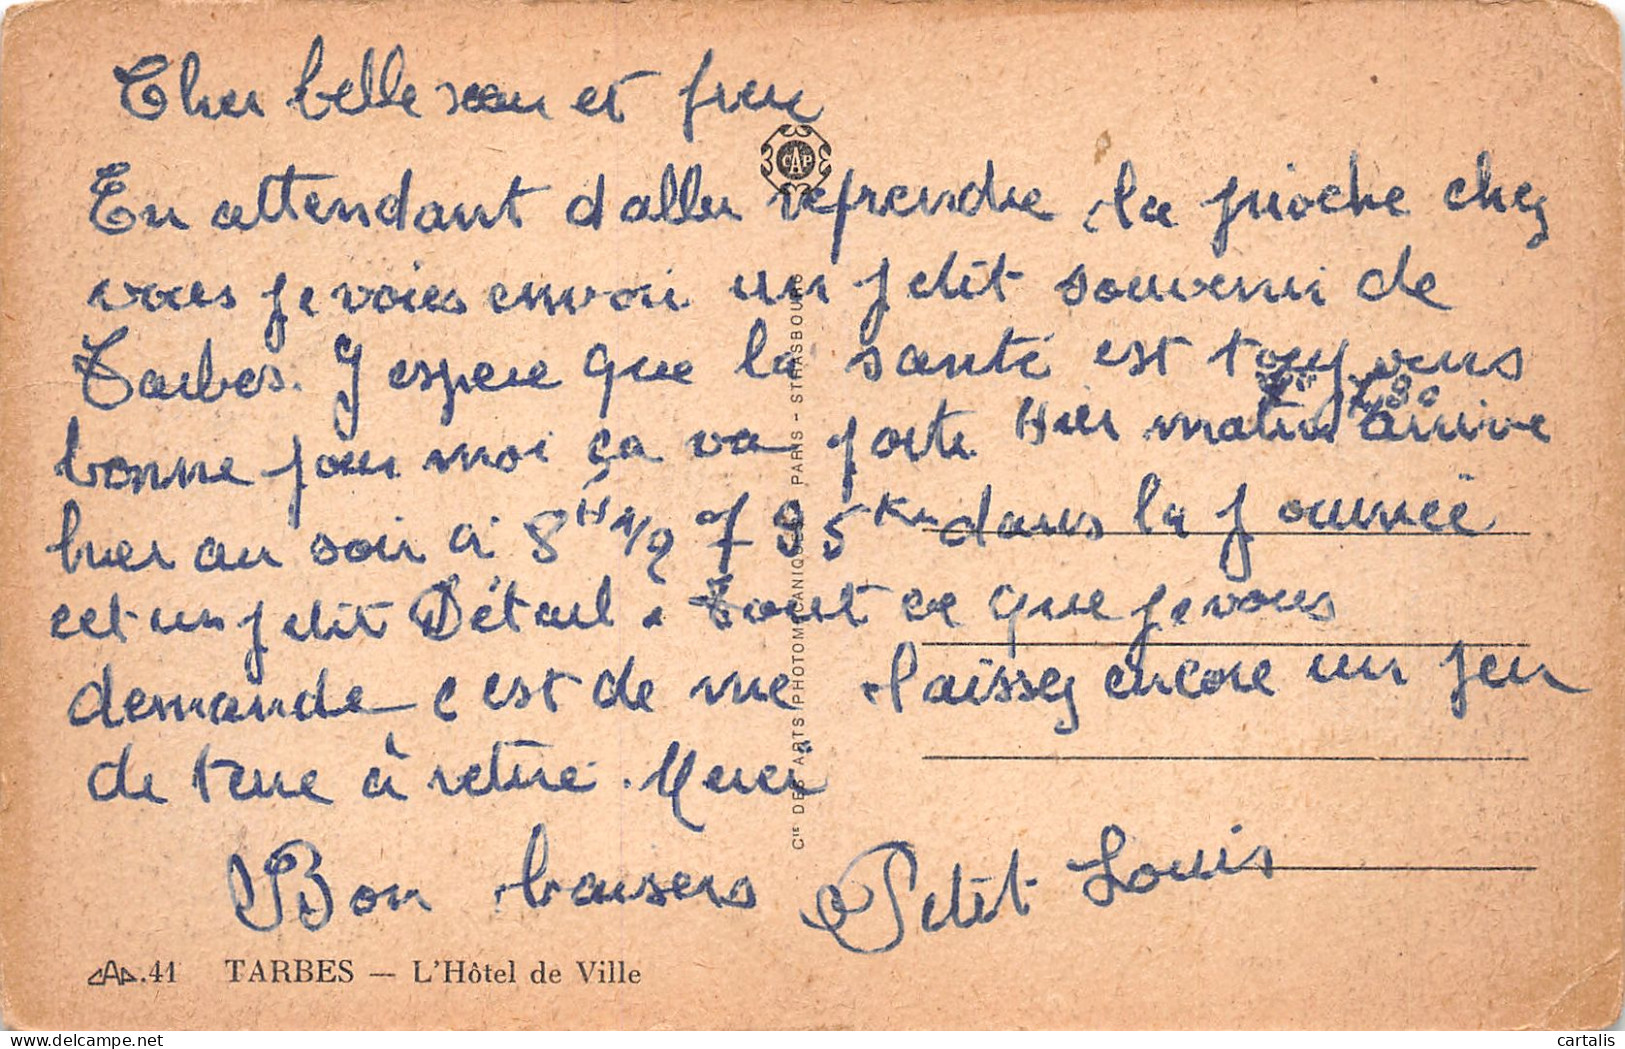 Cher belle sœur et frere
En attendant d aller reprendre la pioche chez
vous je voies envoi un petit souvenir de
Tarbes. J espere que la santé est toujours
bonne pour moi ça va forte Hier matin arrive
hier au soir à 8 H 1/2 95 Km dans la journeé
cet un petit Détail. Tout ce que je vous
demande c est de me laissez encore un peu
de terre à retire. Merci
Bon baisers Petit Louis
CAP
Cie DES ARTS PHOTOMÉCANIQUES PARIS - STRASBOURG
CAP.41 TARBES — L'Hôtel de Ville
cartalis